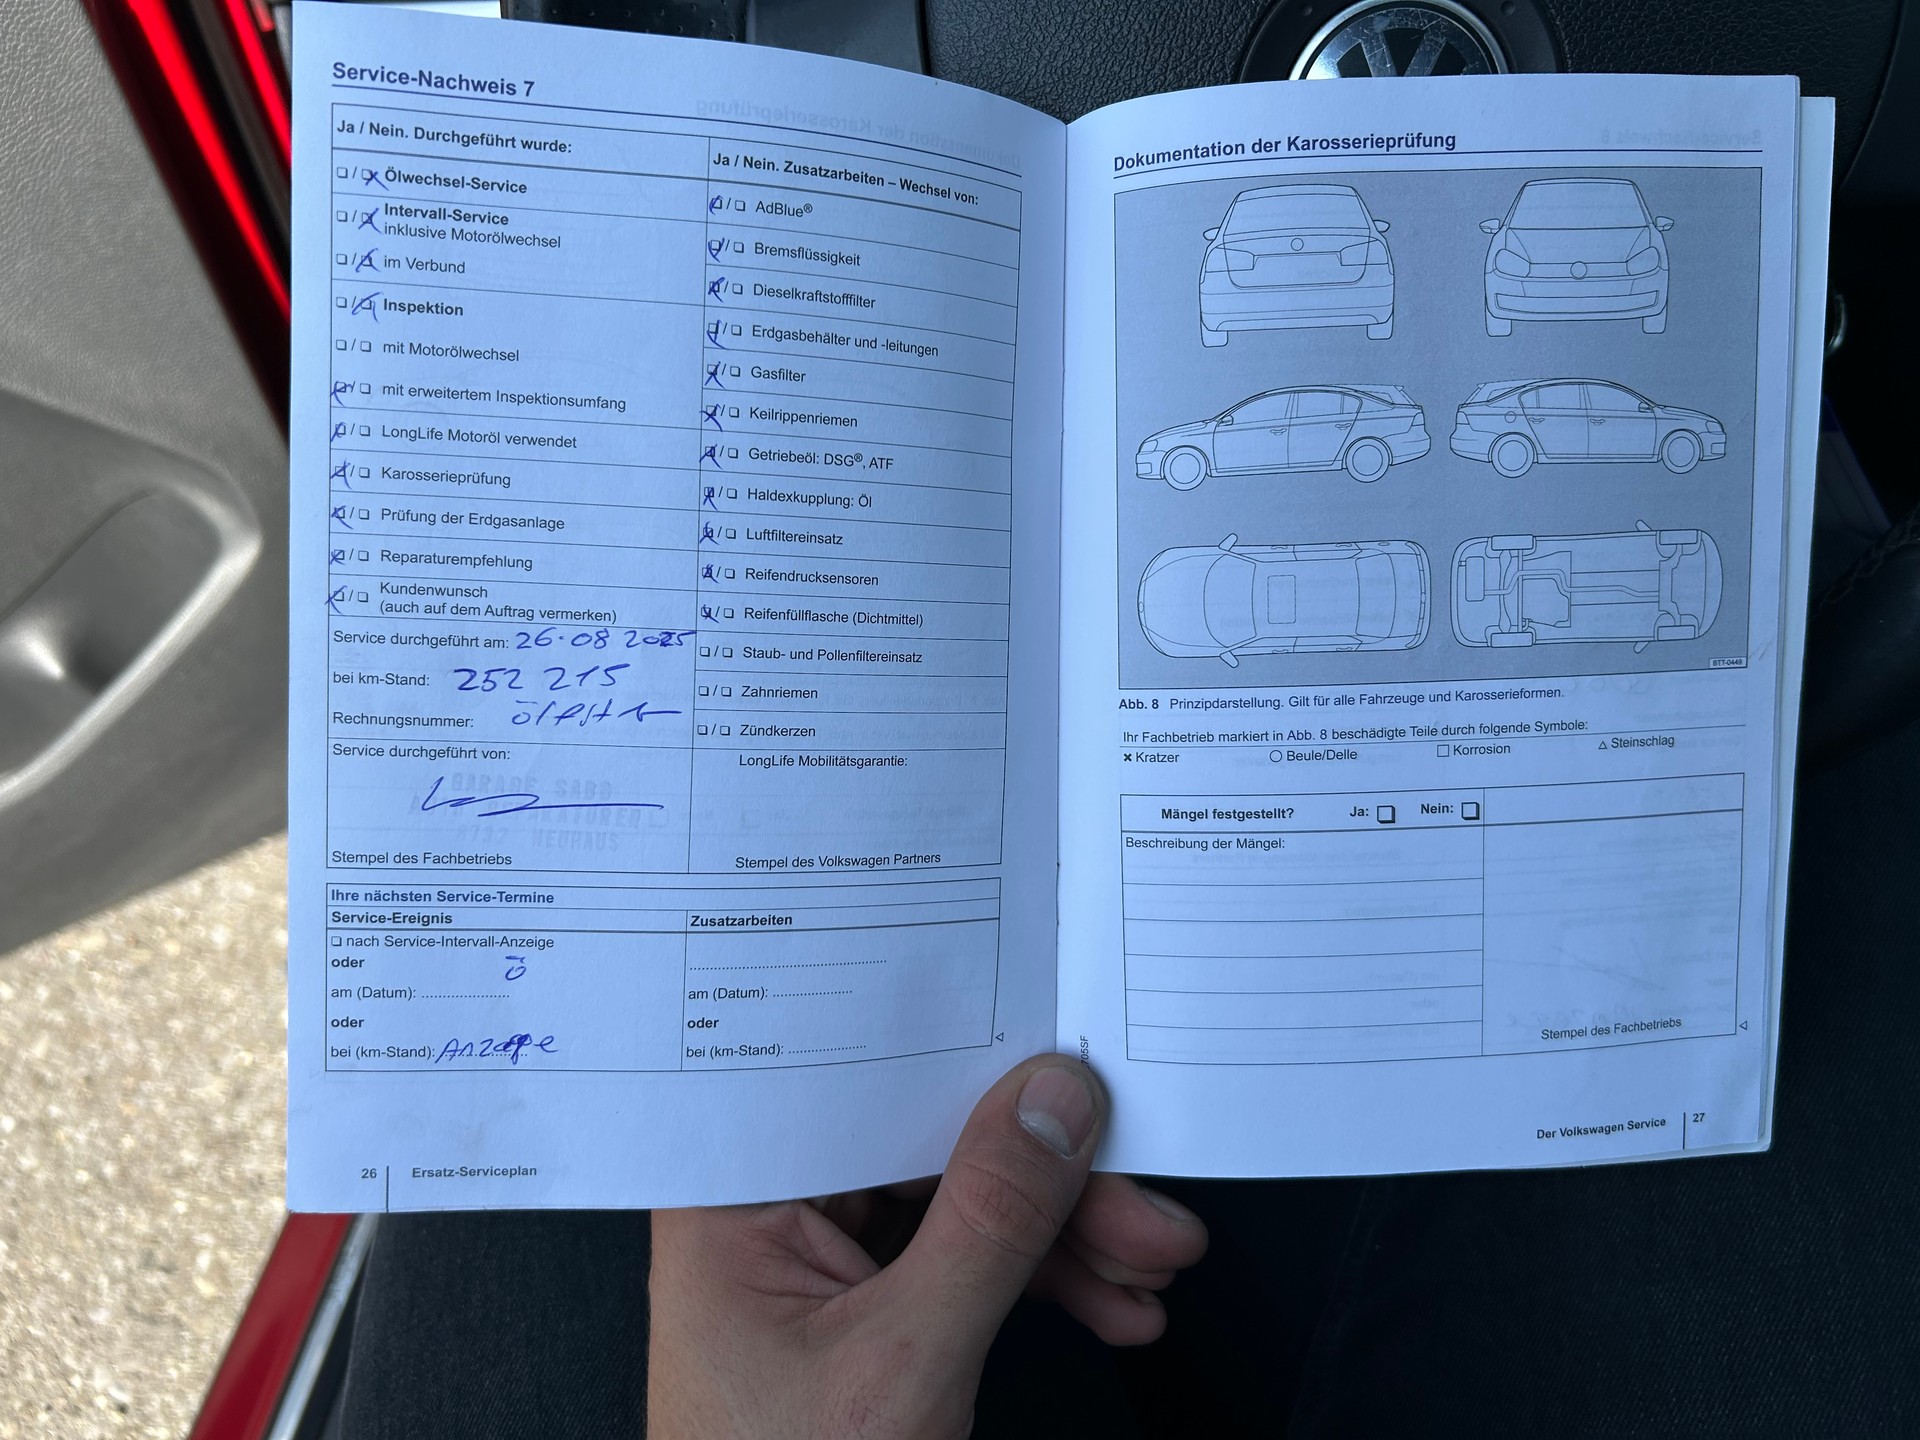 Service-Nachweis 7
Ja / Nein. Durchgeführt wurde:
❏ / ❏ Ölwechsel-Service
❏ / ❏ Intervall-Service
inklusive Motorölwechsel
❏ / ❏ im Verbund
❏ / ❏ Inspektion
❏ / ❏ mit Motorölwechsel
❏ / ❏ mit erweitertem Inspektionsumfang
❏ / ❏ LongLife Motoröl verwendet
❏ / ❏ Karosserieprüfung
❏ / ❏ Prüfung der Erdgasanlage
❏ / ❏ Reparaturempfehlung
❏ / ❏ Kundenwunsch
(auch auf dem Auftrag vermerken)
Service durchgeführt am: 26.08 2025
bei km-Stand: 252 215
Rechnungsnummer:
Service durchgeführt von:
GARAGE SABO
AUTO REPARATUREN
8732 NEUHAUS
Stempel des Fachbetriebs
Ja / Nein. Zusatzarbeiten – Wechsel von:
❏ / ❏ AdBlue®
❏ / ❏ Bremsflüssigkeit
❏ / ❏ Dieselkraftstofffilter
❏ / ❏ Erdgasbehälter und -leitungen
❏ / ❏ Gasfilter
❏ / ❏ Keilrippenriemen
❏ / ❏ Getriebeöl: DSG®, ATF
❏ / ❏ Haldexkupplung: Öl
❏ / ❏ Luftfiltereinsatz
❏ / ❏ Reifendrucksensoren
❏ / ❏ Reifenfüllflasche (Dichtmittel)
❏ / ❏ Staub- und Pollenfiltereinsatz
❏ / ❏ Zahnriemen
❏ / ❏ Zündkerzen
LongLife Mobilitätsgarantie:
Stempel des Volkswagen Partners
Ihre nächsten Service-Termine
Service-Ereignis
❏ nach Service-Intervall-Anzeige
oder
Ö
am (Datum): .....................
oder
bei (km-Stand): Anzeige
Zusatzarbeiten
am (Datum): ...................
oder
bei (km-Stand): ..................
26 Ersatz-Serviceplan
Dokumentation der Karosserieprüfung
BTT-0449
Abb. 8 Prinzipdarstellung. Gilt für alle Fahrzeuge und Karosserieformen.
Ihr Fachbetrieb markiert in Abb. 8 beschädigte Teile durch folgende Symbole:
✖ Kratzer ○ Beule/Delle □ Korrosion △ Steinschlag
Mängel festgestellt? Ja: ❏ Nein: ❏
Beschreibung der Mängel:
Stempel des Fachbetriebs
705SF
Der Volkswagen Service 27